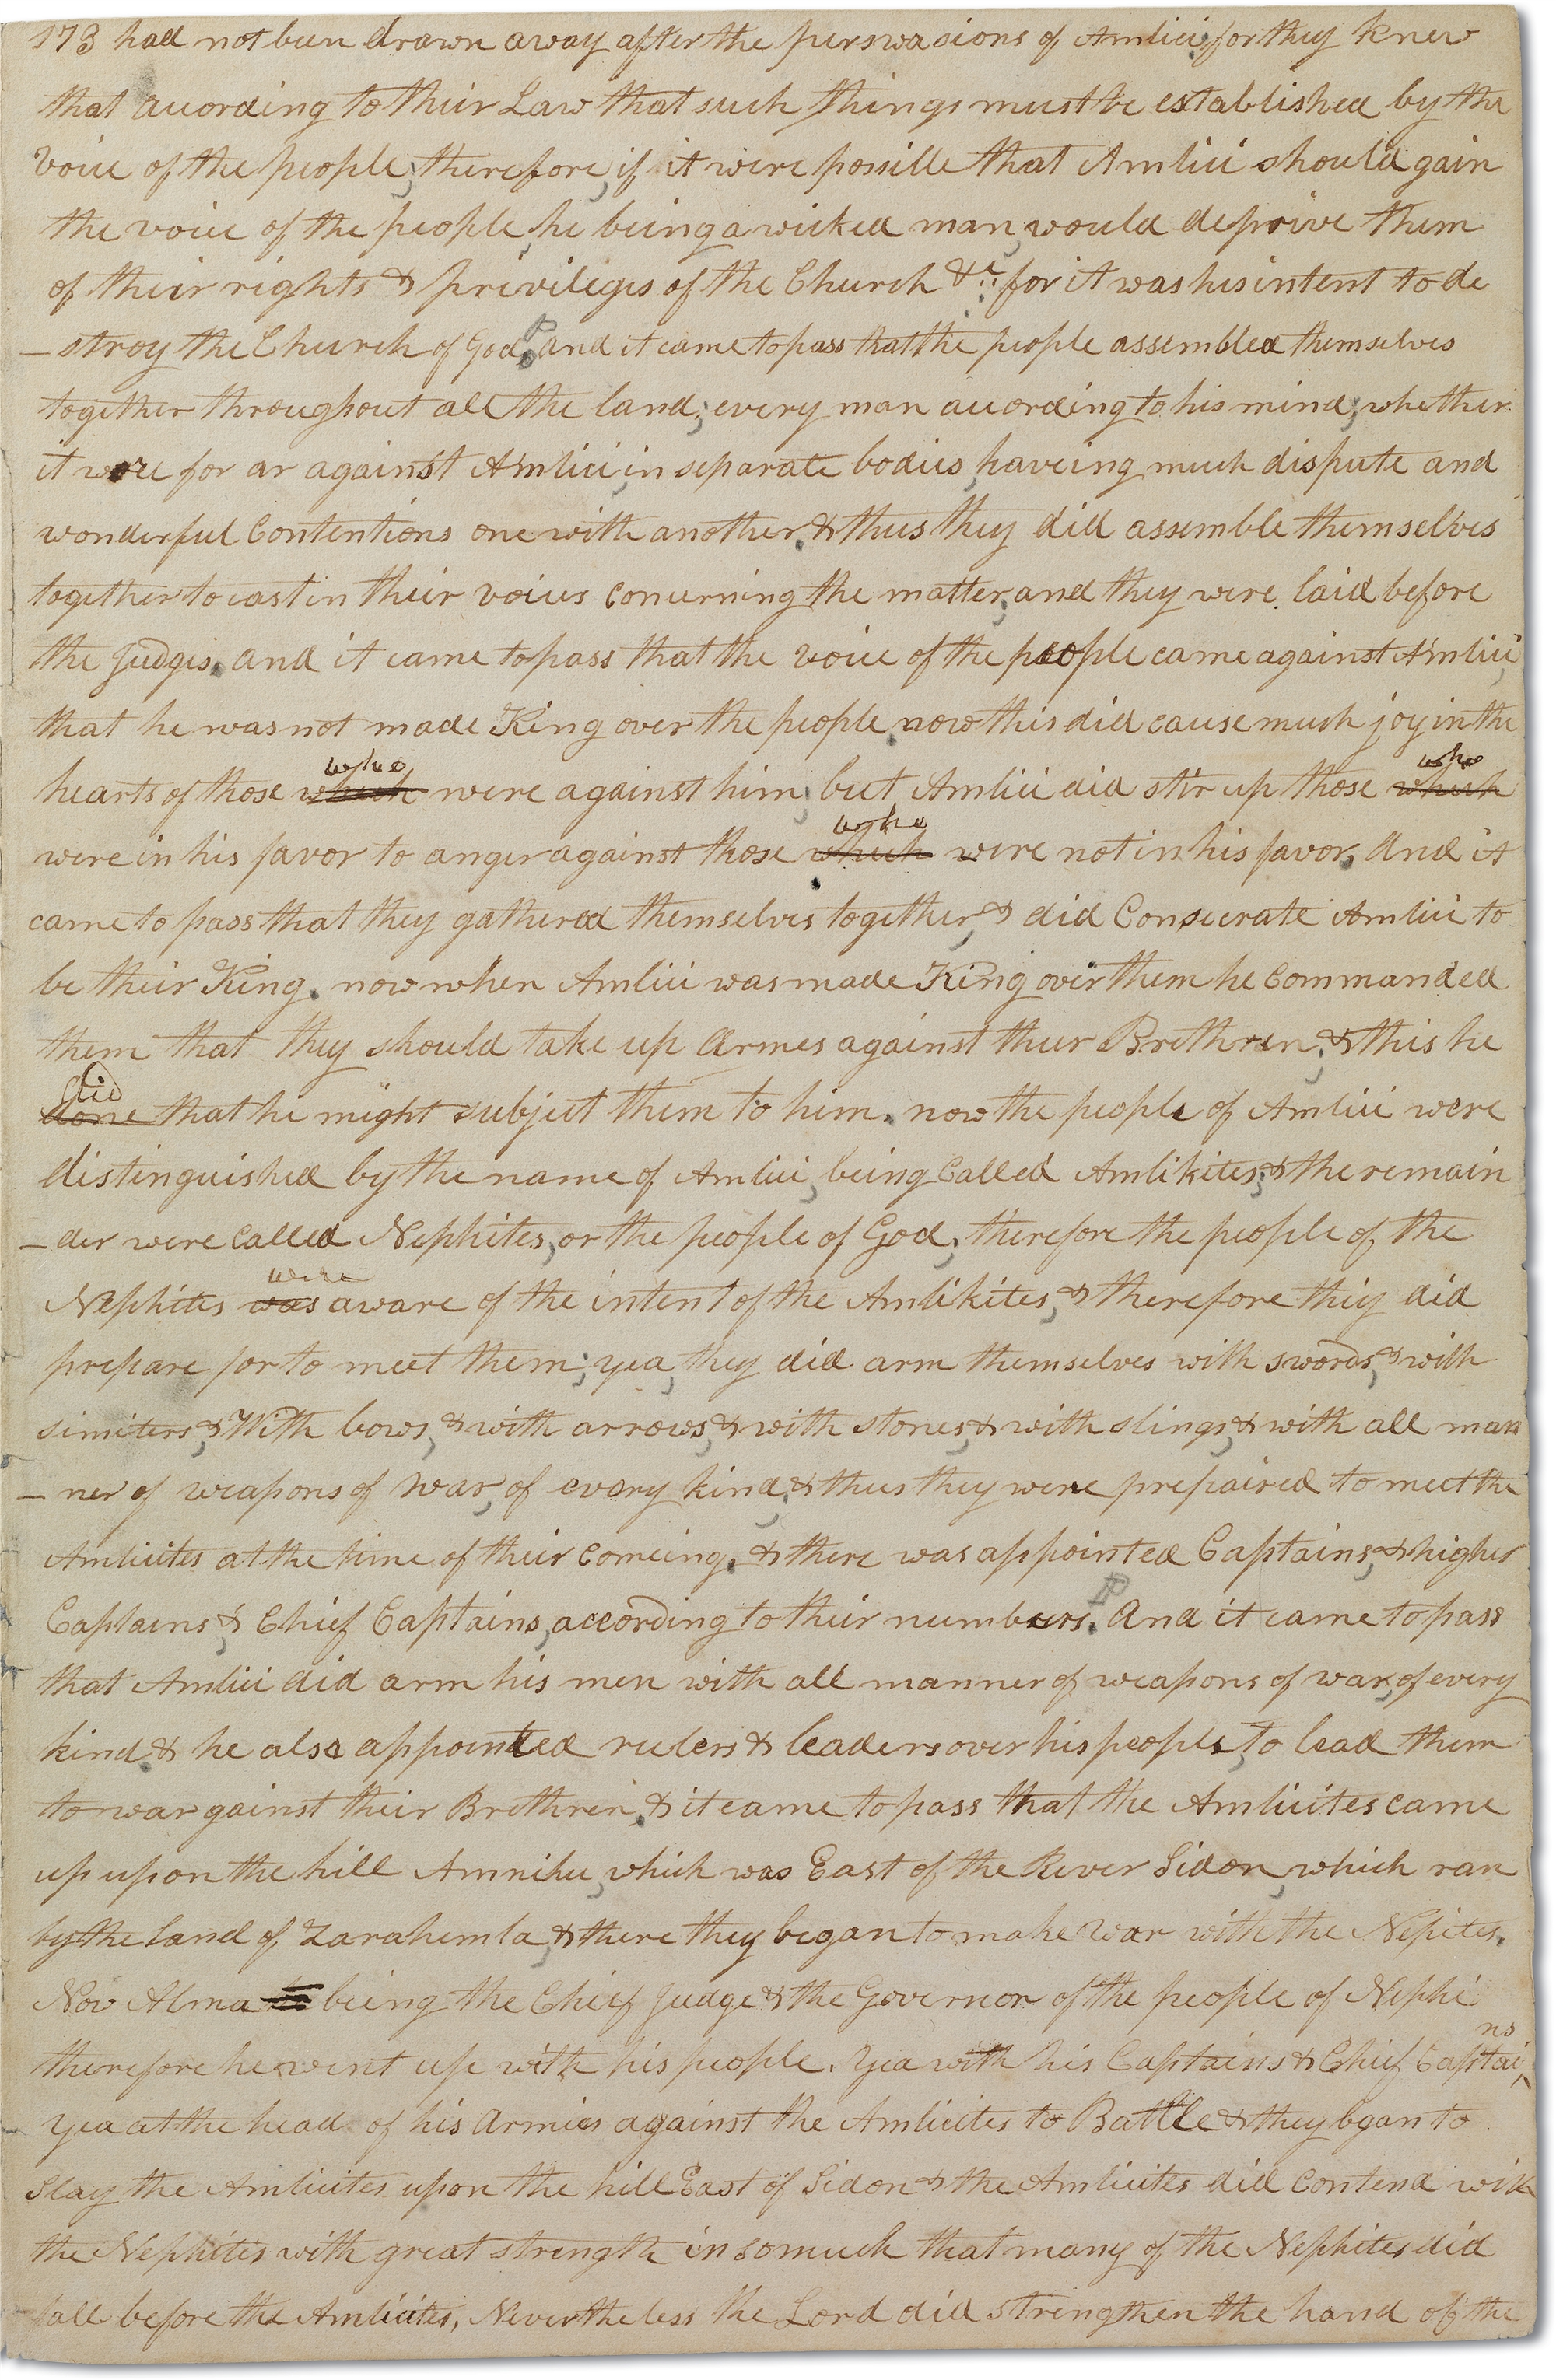 173 had not been drawn away after the perswasions of Amlici, for they knew
that according to their Law that such things must be established by the
voice of the people; therefore, if it were possille that Amlici should gain
the voice of the people, he being a wicked man, would deprive them
of their rights & privileges of the Church &c; for it was his intent to de
– stroy the Church of God. P and it came to pass that the people assembled themselves
together throughout all the land; every man according to his mind; whether
it were for ar against Amlici, in separate bodies, haveing much dispute and
wonderful Contentions one with another. & thus they did assemble themselves
together to cast in their voices concerning the matter, and they were laid before
the Judges. and it came to pass that the voice of the people came against Amlici,
that he was not made King over the people. now this did cause much joy in the
who who
hearts of those which were against him; but Amlici did stir up those which
who
were in his favor to anger against those which were not in his favor. And it
came to pass that they gathered themselves together, & did Consecrate Amlici to
be their King. now when Amlici was made King over them he Commanded
them that they should take up Armes against their Brethren; & this he
did
done that he might subject them to him. now the people of Amlici were
distinguished by the name of Amlici, being Called Amlikites; & the remain
– der were Called Nephites, or the people of God; therefore the people of the
were
Nephites was aware of the intent of the Amlikites, & therefore they did
prepare for to meet them; yea, they did arm themselves with swords, & with
simiters, & With bows, & with arrows, & with stones, & with slings, & with all man
– ner of weapons of war, of every kind; & thus they were prepaired to meet the
Amlicites at the time of their Comeing. & there was appointed Captains, & higher
Captains, & Chief Captains, according to their numbers. P And it came to pass
that Amlici did arm his men with all manner of weapons of war, of every
kind. & he also appointed rulers & leaders over his people, to lead them
to war gainst their Brethren. & it came to pass that the Amlicites came
up upon the hill Amnihu, which was East of the River Sidon, which ran
by the land of Zarahemla, & there they began to make war with the Nepites.
Now Alma being the Chief Judge & the Governor of the people of Nephi
ns
therefore he went up with his people. Yea with his Captains & Chief Captai
yea at the head of his Armies against the Amlicites to Battle & they bgan to
slay the Amlicites upon the hill East of Sidon & the Amlicites did Contend with
the Nephites with great strength in somuch that many of the Nephites did
fall before the Amlicites, Nevertheless the Lord did strengthen the hand of the